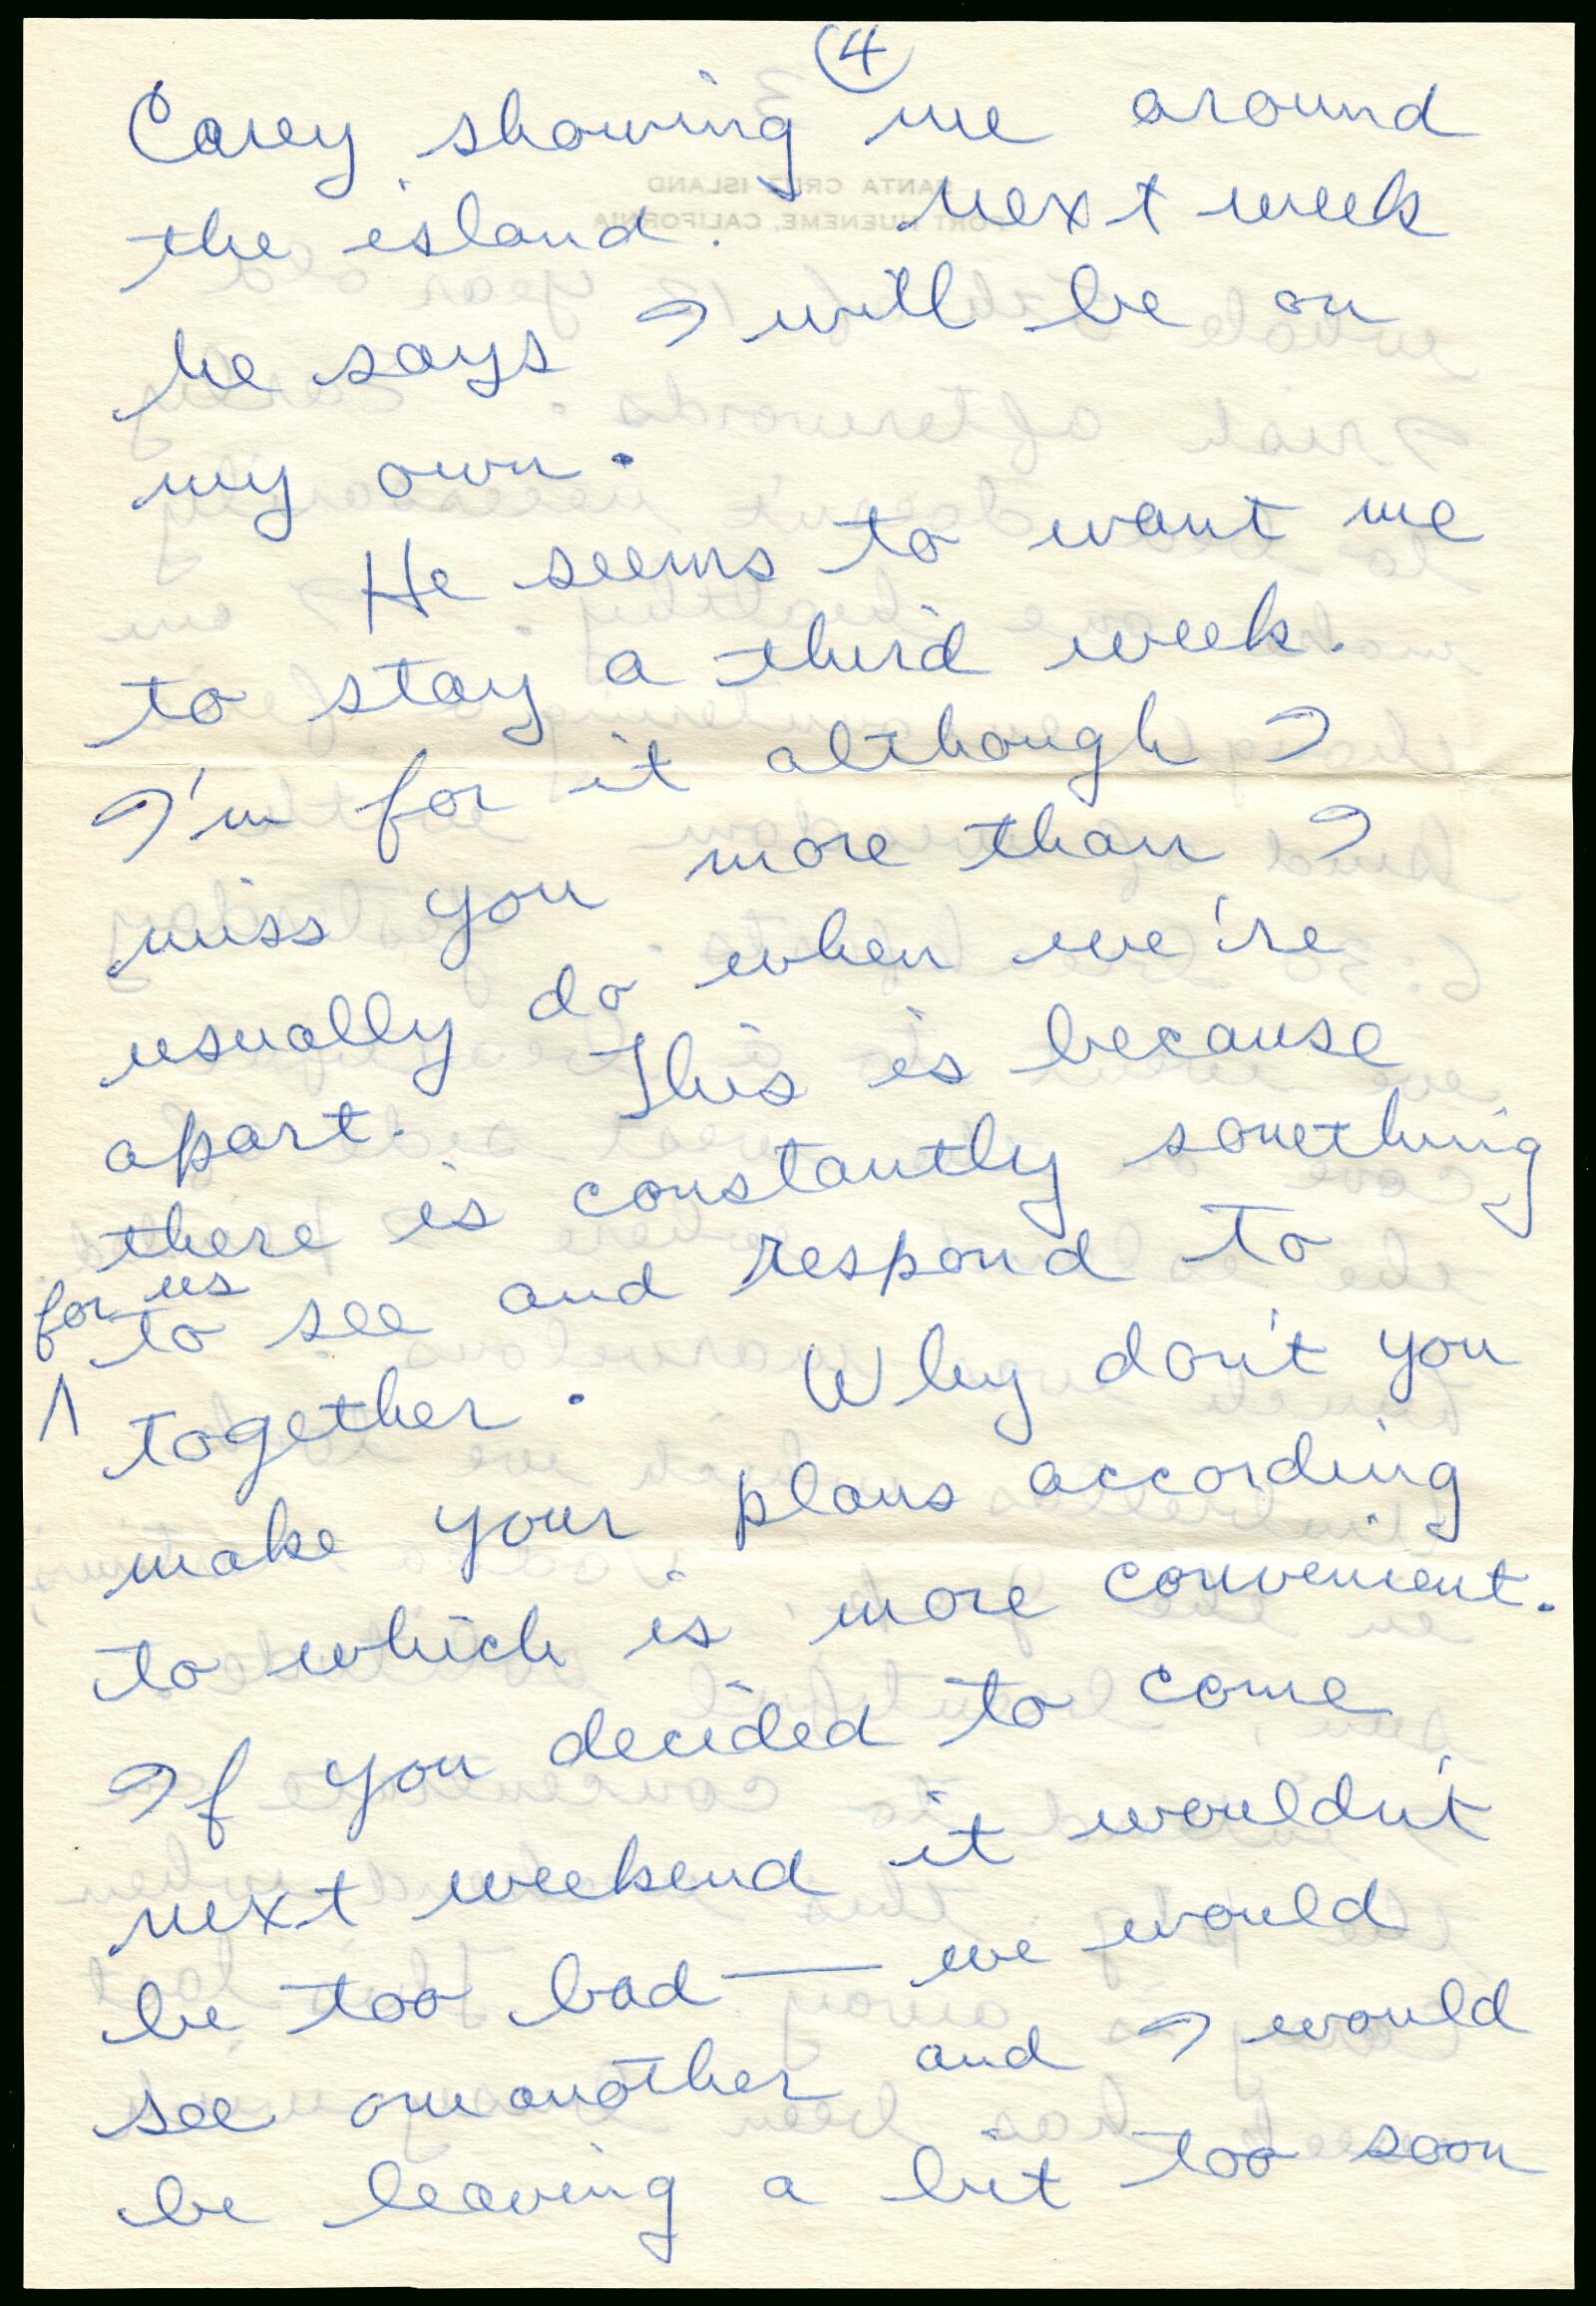 4
Carey showing me around
the island. Next week
he says I will be on
my own.
He seems to want me
to stay a third week.
I'm for it although I
miss you more than I
usually do when we're
apart. This is because
there is constantly something
for us
to see and respond to
together. Why don't you
make your plans according
to which is more convenient.
If you decided to come
next weekend it wouldn't
be too bad — we would
see one another and I would
be leaving a bit too soon
SANTA CRUZ ISLAND
PORT HUENEME, CALIFORNIA